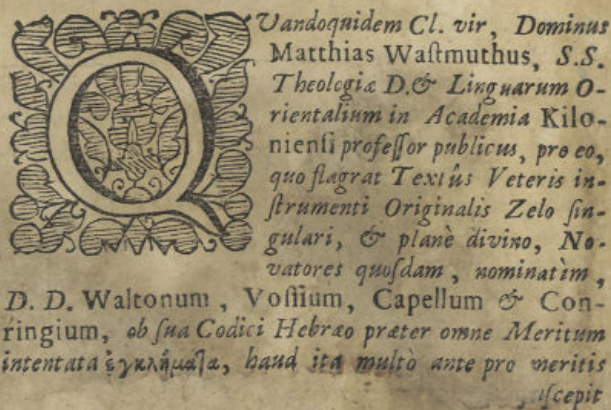 QUandoquidem Cl. vir, Dominus
Matthias Waſtmuthus, S.S.
Theologiæ D. & Linguarum O-
rientalium in Academia Kilo-
nienſi profeſſor publicus, pro eo,
quo flagrat Textûs Veteris in-
ſtrumenti Originalis Zelo ſin-
gulari, & planè divino, No-
vatores quoſdam, nominatìm,
D. D. Waltonum, Voſſium, Capellum & Con-
ringium, ob ſua Codici Hebræo præter omne Meritum
intentata ἐγκλήματα, haud ita multò ante pro meritis
ſuſcepit